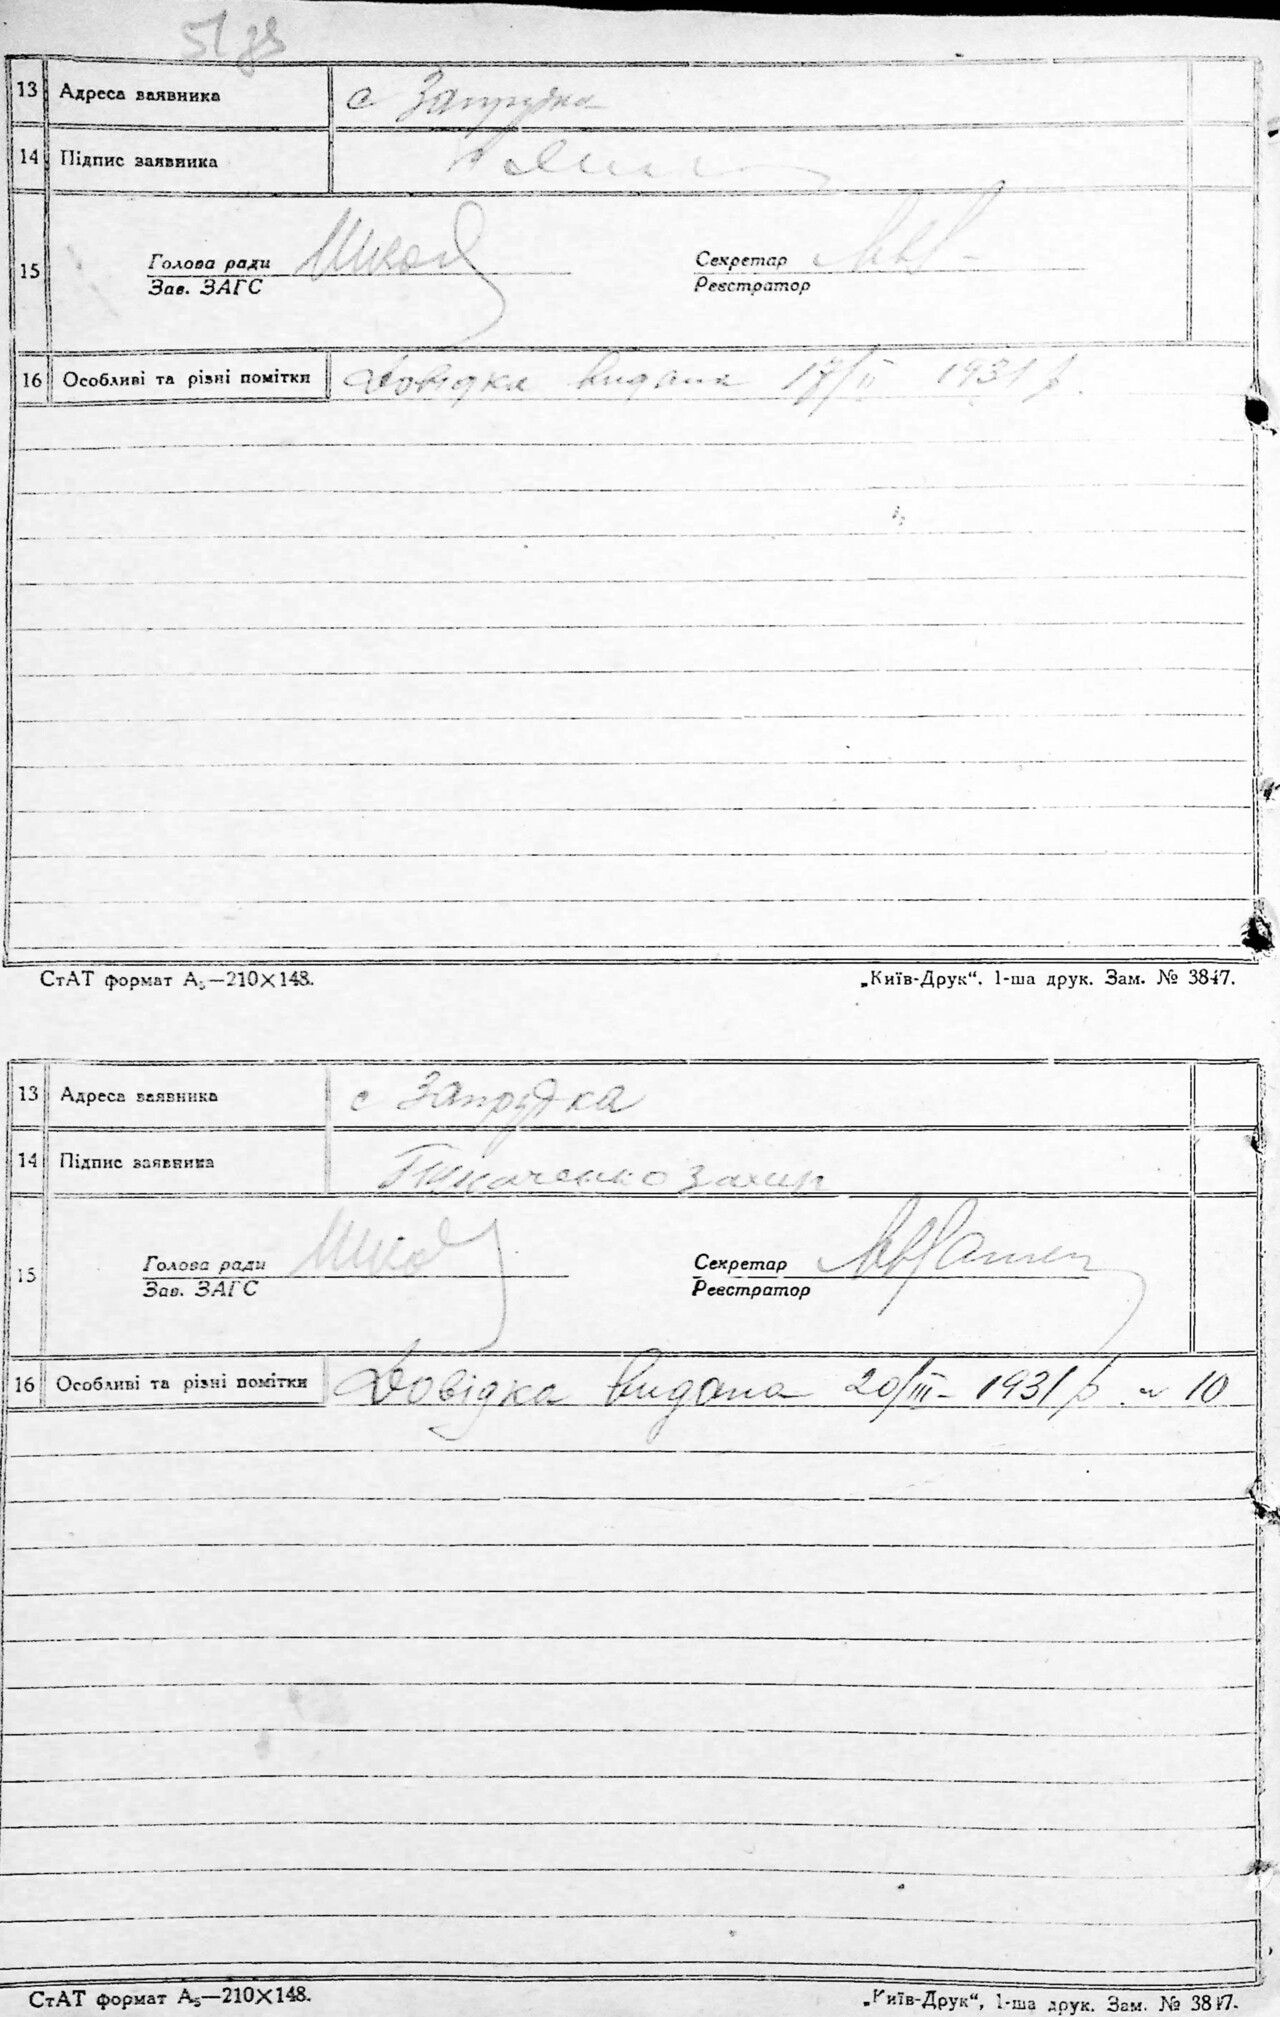 51 зв
13 Адреса заявника с Запрудка
14 Підпис заявника
15 Голова ради Секретар
Зав. ЗАГС Реєстратор
16 Особливі та різні помітки Довідка видана 17/II 1931 р.
СтАТ формат А5—210×148. „Київ-Друк“, 1-ша друк. Зам. № 3847.
13 Адреса заявника с Запрудка
14 Підпис заявника Ткаченко Захар
15 Голова ради Секретар
Зав. ЗАГС Реєстратор
16 Особливі та різні помітки Довідка видана 20/III-1931 р. № 10
СтАТ формат А5—210×148. „Київ-Друк“, 1-ша друк. Зам. № 3847.